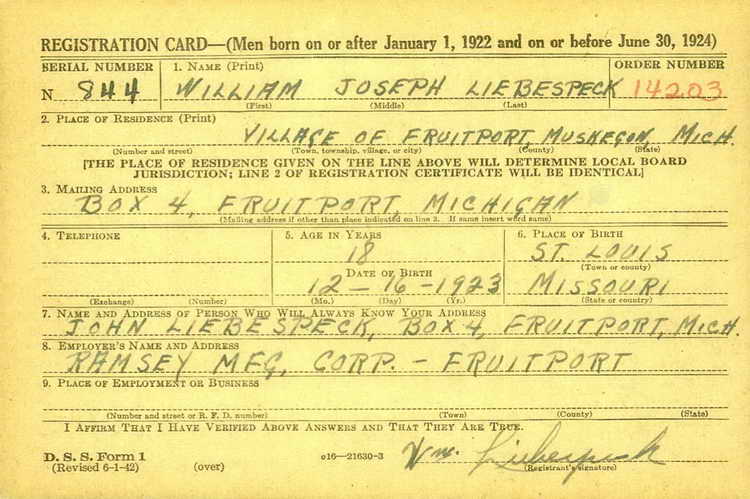 REGISTRATION CARD—(Men born on or after January 1, 1922 and on or before June 30, 1924)
SERIAL NUMBER 1. NAME (Print) ORDER NUMBER
N 844 WILLIAM JOSEPH LIEBESPECK 14203
(First) (Middle) (Last)
2. PLACE OF RESIDENCE (Print)
VILLAGE OF FRUITPORT, MUSKEGON, MICH.
(Number and street) (Town, township, village, or city) (County) (State)
[THE PLACE OF RESIDENCE GIVEN ON THE LINE ABOVE WILL DETERMINE LOCAL BOARD
JURISDICTION; LINE 2 OF REGISTRATION CERTIFICATE WILL BE IDENTICAL]
3. MAILING ADDRESS
BOX 4, FRUITPORT, MICHIGAN
(Mailing address if other than place indicated on line 2. If same insert word same)
4. TELEPHONE 5. AGE IN YEARS 6. PLACE OF BIRTH
18 ST. LOUIS
(Town or county)
DATE OF BIRTH
12-16-1923 MISSOURI
(Exchange) (Number) (Mo.) (Day) (Yr.) (State or country)
7. NAME AND ADDRESS OF PERSON WHO WILL ALWAYS KNOW YOUR ADDRESS
JOHN LIEBESPECK, BOX 4, FRUITPORT, MICH.
8. EMPLOYER'S NAME AND ADDRESS
RAMSEY MFG, CORP. - FRUITPORT
9. PLACE OF EMPLOYMENT OR BUSINESS
(Number and street or R. F. D. number) (Town) (County) (State)
I AFFIRM THAT I HAVE VERIFIED ABOVE ANSWERS AND THAT THEY ARE TRUE.
D. S. S. Form 1
(Revised 6-1-42) (over) c16—21630-3 Wm. Liebespeck
(Registrant's signature)